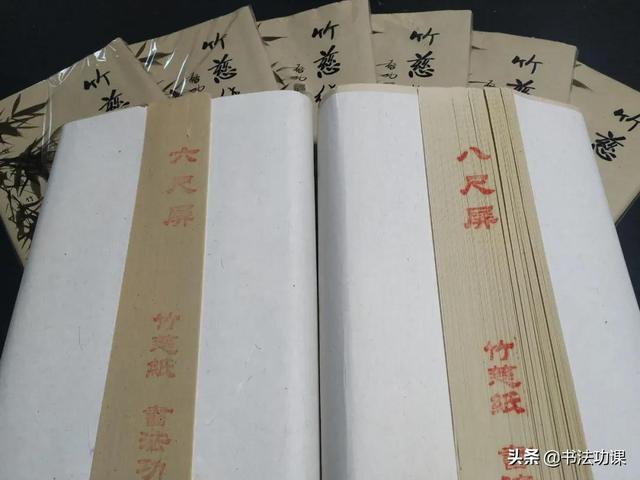 竹慈
竹慈
竹慈
启功
竹慈
竹
竹慈
六尺屏
竹慈紙 書法功
八尺屏
竹慈紙 書
头条 @书法功课